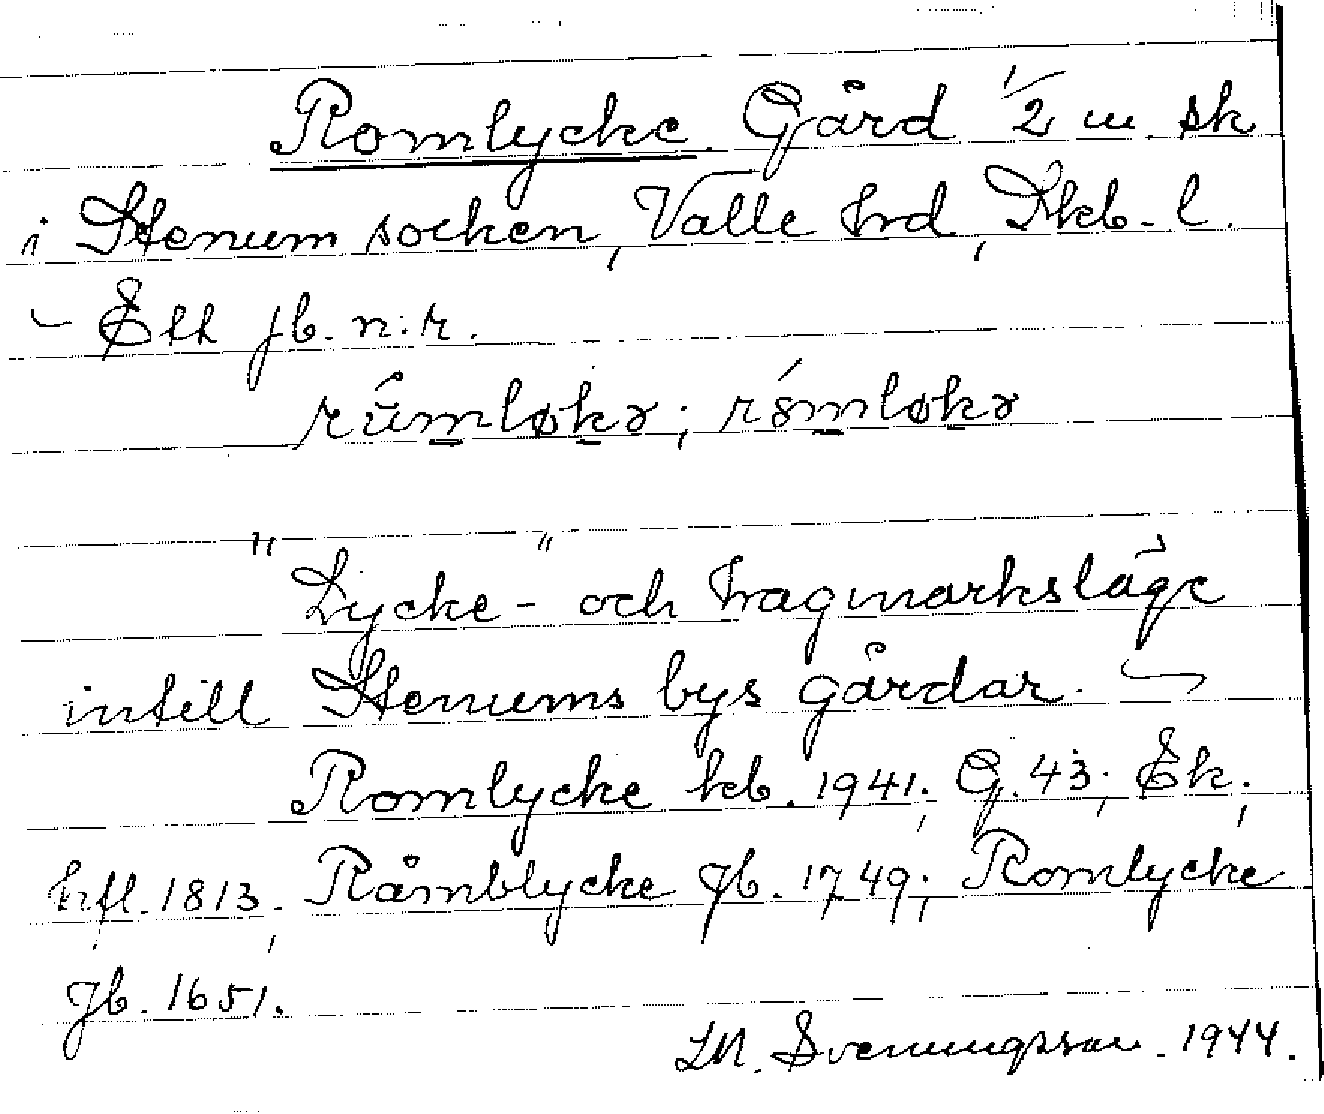 Romlycke. Gård 1/2 m. sk
i Stenum socken, Valle hrd, Skb-l.
– Ett jb. n:r.
rúmløkə; rómløkə
"Lycke-" och hagmarksläge
intill Stenums bys gårdar.
Romlycke kb. 1941; G. 43; Ek;
hfl. 1813; Råmblycke Jb. 1749; Romlycke
Jb. 1651.
LM. Svenungsson. 1944.